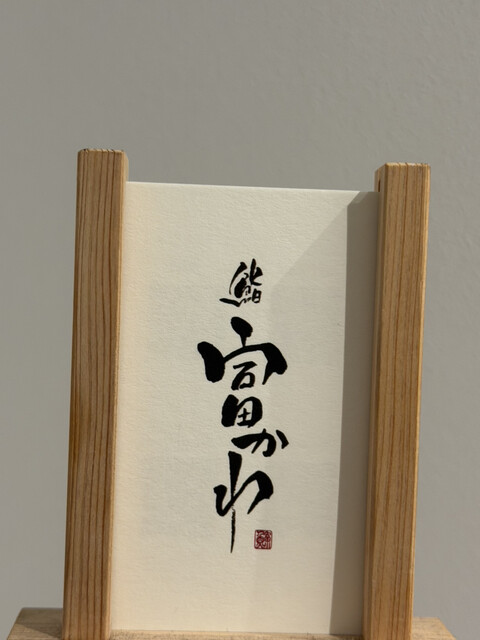 鮨
富かわ